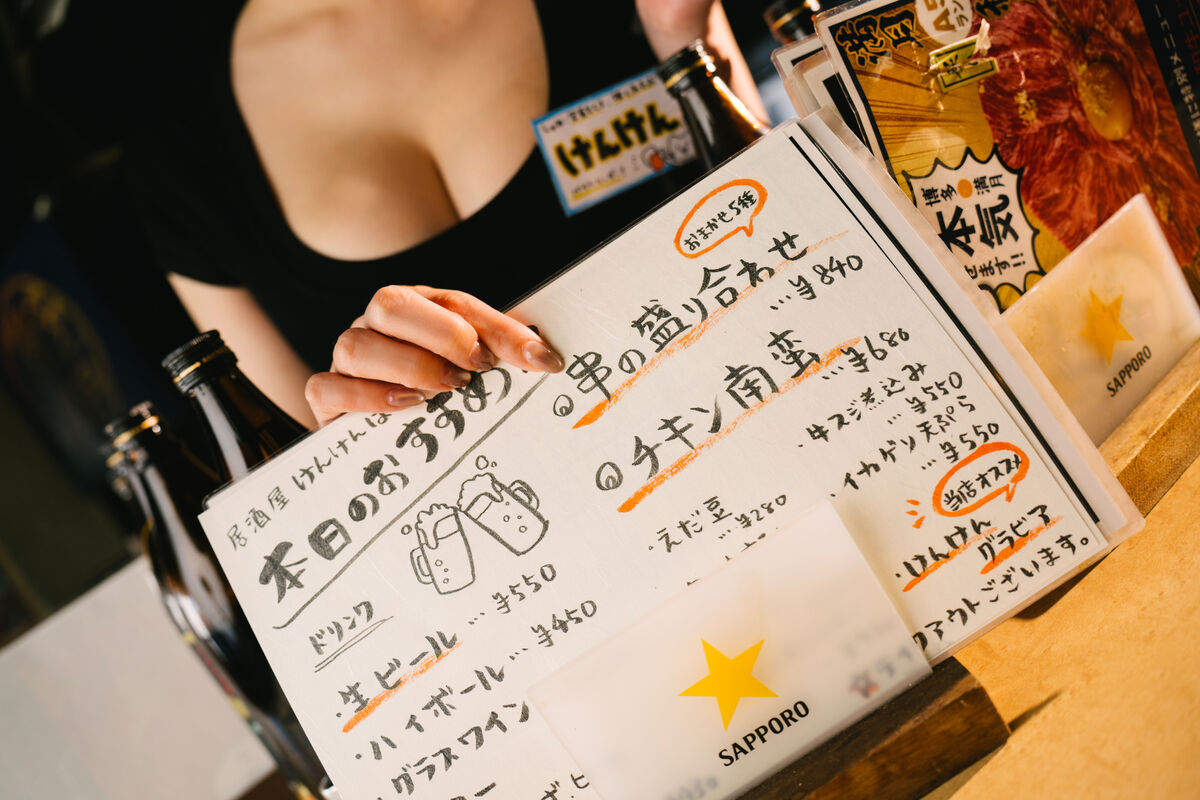 けんけん
居酒屋 けんけんぱ
本日のおすすめ
ドリンク
生ビール …¥550
・ハイボール …¥450
・グラスワイン
おまかせ5種
串の盛り合わせ
…¥840
チキン南蛮 …¥680
・えだ豆
…¥280
・牛スジ煮込み
…¥550
・イカゲソ天ぷら
…¥550
当店オススメ
・けんけん
グラビア
アウトございます。
SAPPORO
満月
博多●満月
本気
せます!!
SAPPORO